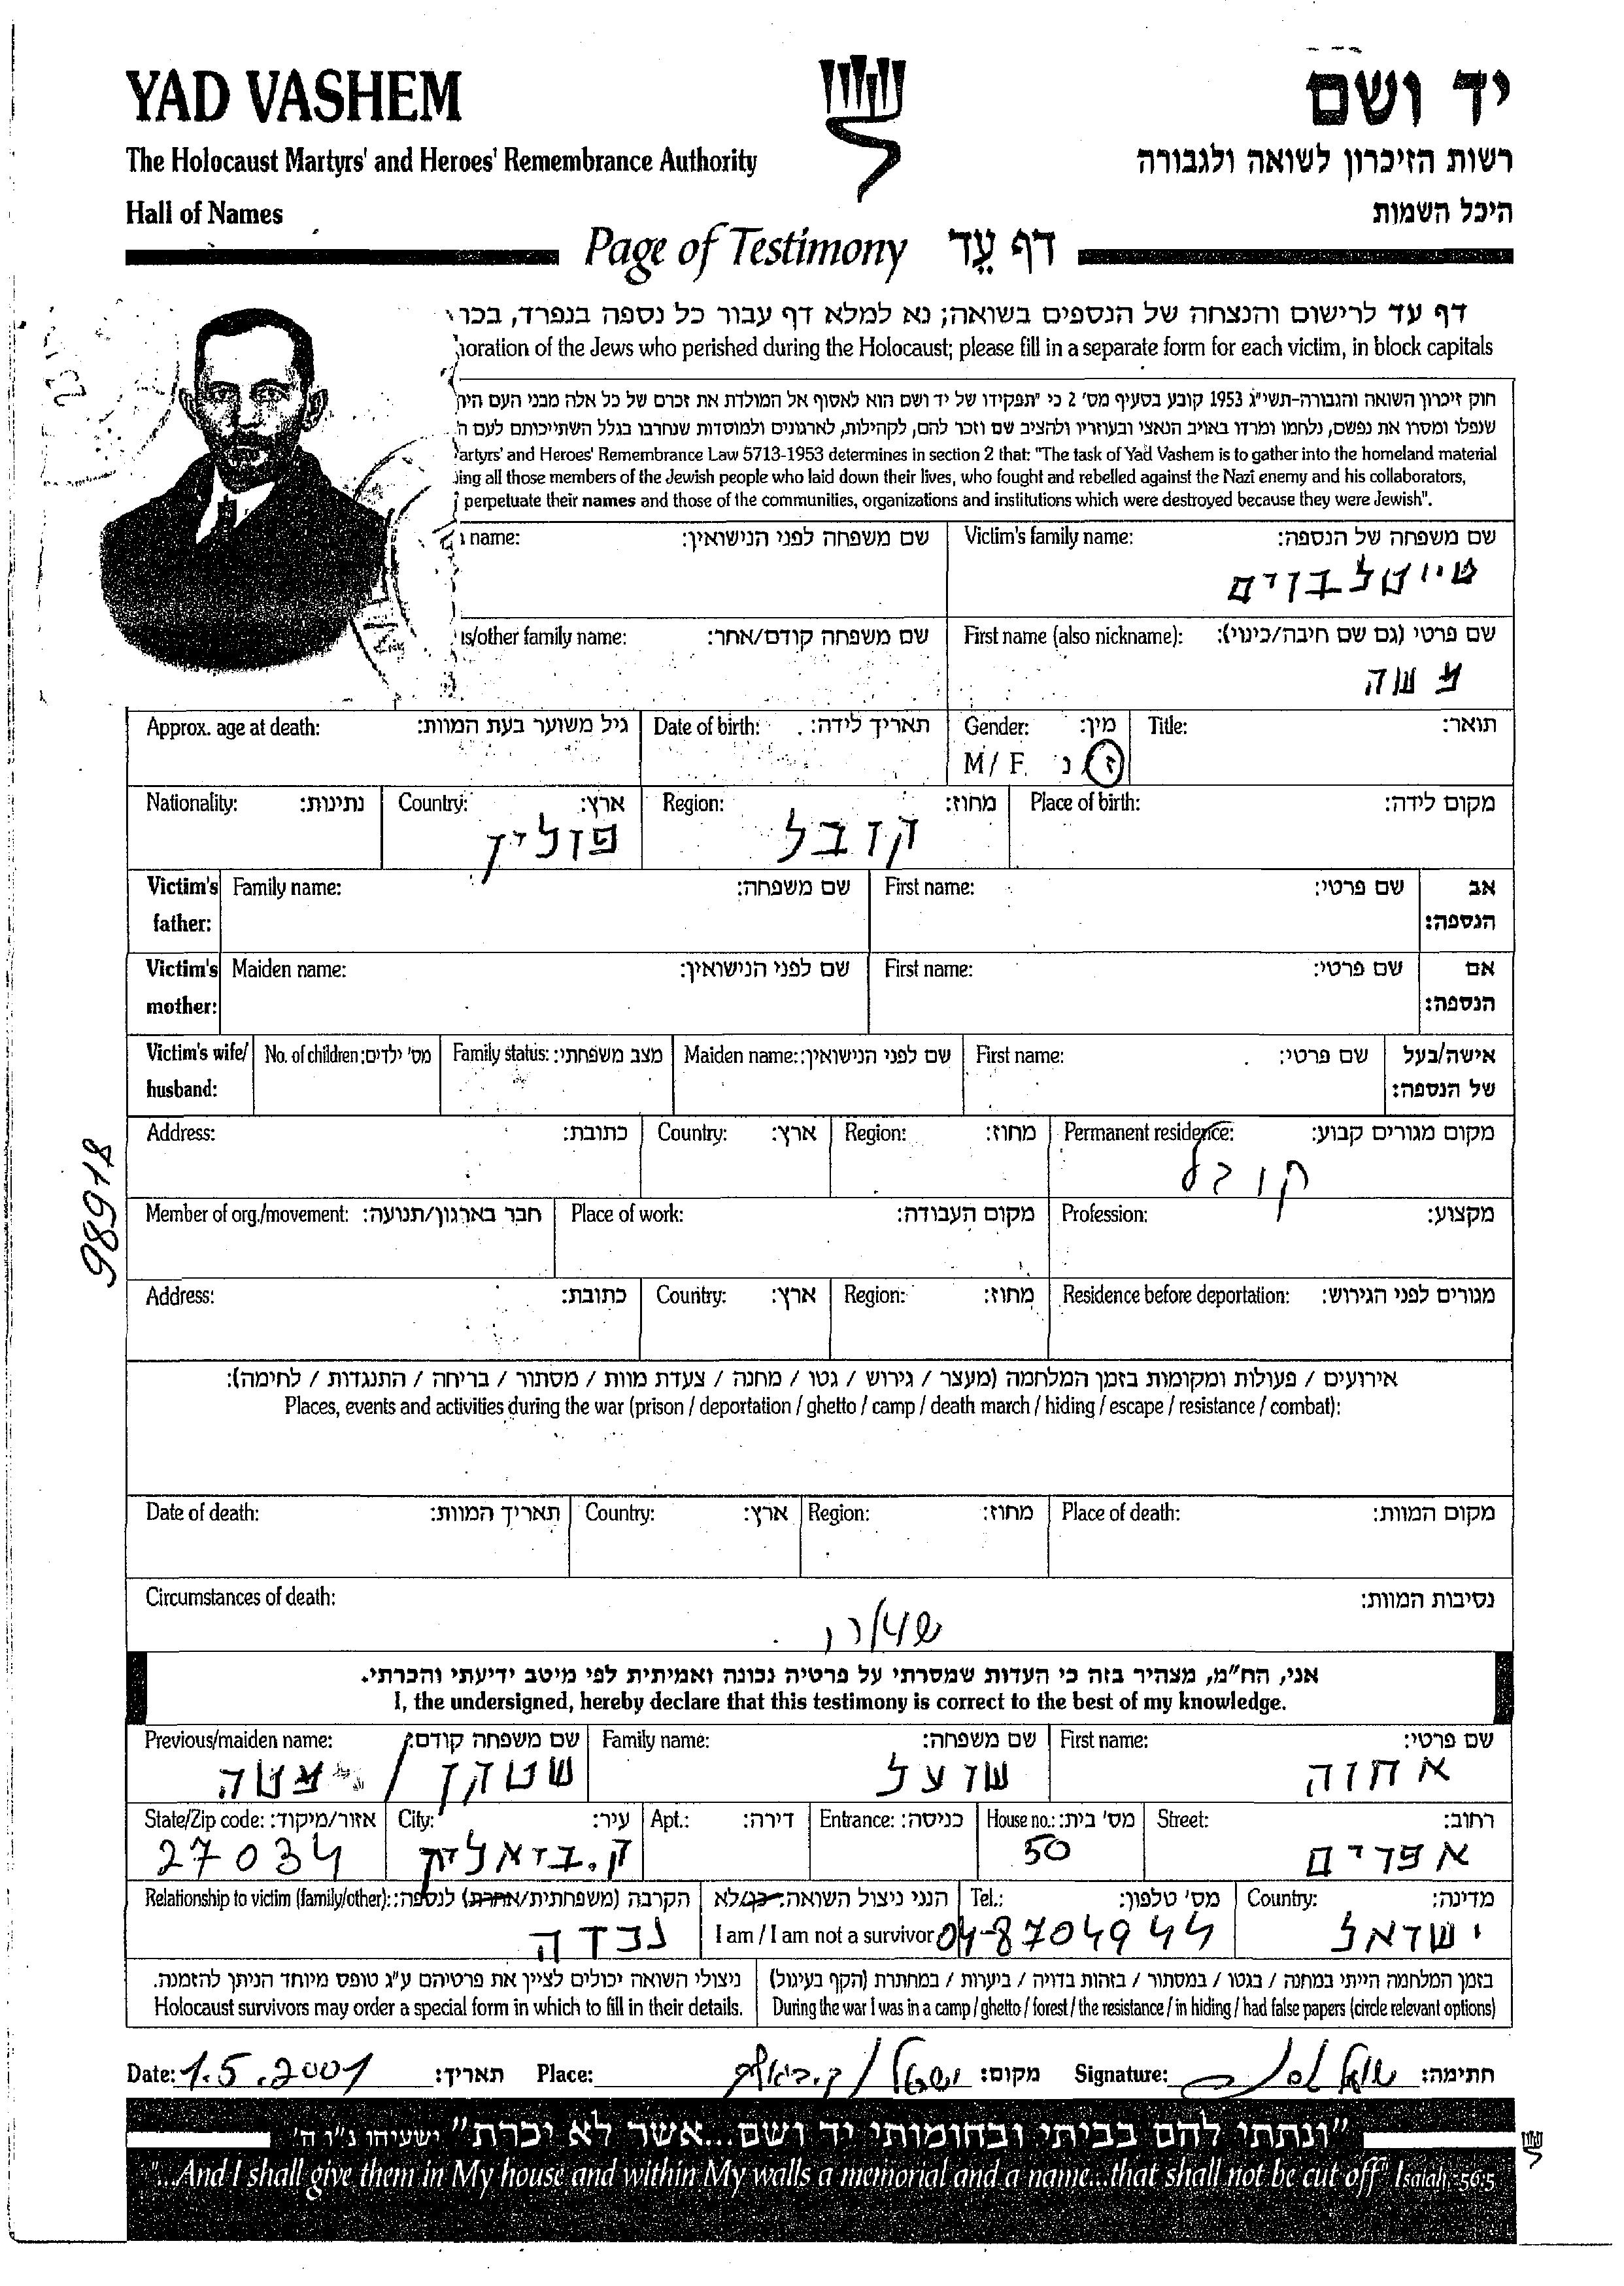 YAD VASHEM
יד ושם
The Holocaust Martyrs' and Heroes' Remembrance Authority
רשות הזיכרון לשואה ולגבורה
Hall of Names
היכל השמות
Page of Testimony דף עֵד
דף עד לרישום והנצחה של הנספים בשואה; נא למלא דף עבור כל נספה בנפרד, בכ
oration of the Jews who perished during the Holocaust; please fill in a separate form for each victim, in block capitals
חוק זיכרון השואה והגבורה-תשי"ג 1953 קובע בסעיף מס' 2 כי "תפקידו של יד ושם הוא לאסוף אל המולדת את זכרם של כל אלה מבני העם
שנפלו ומסרו את נפשם, נלחמו ומרדו באויב הנאצי ובעוזריו ולהציב שם וזכר להם, לקהילות, לארגונים ולמוסדות שנחרבו בגלל השתייכותם לעם
artyrs' and Heroes' Remembrance Law 5713-1953 determines in section 2 that: "The task of Yad Vashem is to gather into the homeland material
ing all those members of the Jewish people who laid down their lives, who fought and rebelled against the Nazi enemy and his collaborators,
perpetuate their names and those of the communities, organizations and institutions which were destroyed because they were Jewish".
Victim's family name: שם משפחה של הנספה:
טייטלבוים
name: שם משפחה לפני הנישואין:
First name (also nickname): שם פרטי (גם שם חיבה/כינוי):
משה
us/other family name: שם משפחה קודם/אחר:
Title: תואר:
Gender: מין:
M / F ז / נ
Date of birth: תאריך לידה:
Approx. age at death: גיל משוער בעת המוות:
Place of birth: מקום לידה:
Region: מחוז:
קובל
Country: ארץ:
פולין
Nationality: נתינות:
Victim's father: אב הנספה:
First name: שם פרטי:
Family name: שם משפחה:
Victim's mother: אם הנספה:
First name: שם פרטי:
Maiden name: שם לפני הנישואין:
Victim's wife/ husband: אישה/בעל של הנספה:
First name: שם פרטי:
Maiden name: שם לפני הנישואין:
Family status: מצב משפחתי:
No. of children: מס' ילדים:
Permanent residence: מקום מגורים קבוע:
קובל
Region: מחוז:
Country: ארץ:
Address: כתובת:
98918
Profession: מקצוע:
Place of work: מקום העבודה:
Member of org./movement: חבר בארגון/תנועה:
Residence before deportation: מגורים לפני הגירוש:
Region: מחוז:
Country: ארץ:
Address: כתובת:
אירועים / פעולות ומקומות בזמן המלחמה (מעצר / גירוש / גטו / מחנה / צעדת מוות / מסתור / בריחה / התנגדות / לחימה):
Places, events and activities during the war (prison / deportation / ghetto / camp / death march / hiding / escape / resistance / combat):
Place of death: מקום המוות:
Region: מחוז:
Country: ארץ:
Date of death: תאריך המוות:
Circumstances of death: נסיבות המוות:
אני, הח"מ, מצהיר בזה כי העדות שמסרתי על פרטיה נכונה ואמיתית לפי מיטב ידיעתי והכרתי.
I, the undersigned, hereby declare that this testimony is correct to the best of my knowledge.
First name: שם פרטי:
אחוה
Family name: שם משפחה:
Previous/maiden name: שם משפחה קודם:
Street: רחוב:
אפרים
House no.: מס' בית:
50
Entrance: כניסה:
Apt.: דירה:
City: עיר:
ק.ביאליק
State/Zip code: אזור/מיקוד:
27034
Country: מדינה:
ישראל
Tel.: מס' טלפון:
04-8704944
הנני ניצול השואה: כן/לא
I am / I am not a survivor
Relationship to victim (family/other): הקרבה (משפחתית/אחרת) לנספה:
נכדה
בזמן המלחמה הייתי במחנה / בגטו / במסתור / בזהות בדויה / ביערות / במחתרת (הקף בעיגול)
During the war I was in a camp / ghetto / forest / the resistance / in hiding / had false papers (circle relevant options)
ניצולי השואה יכולים לציין את פרטיהם ע"ג טופס מיוחד הניתן להזמנה.
Holocaust survivors may order a special form in which to fill in their details.
Date: 1.5.2001 תאריך:
Place: ישראל / ק.ביאליק מקום:
Signature: חתימה:
"ונתתי להם בביתי ובחומותי יד ושם...אשר לא יכרת" ישעיהו נ"ו ה'
"...And I shall give them in My house and within My walls a memorial and a name...that shall not be cut off" Isaiah, 56:5